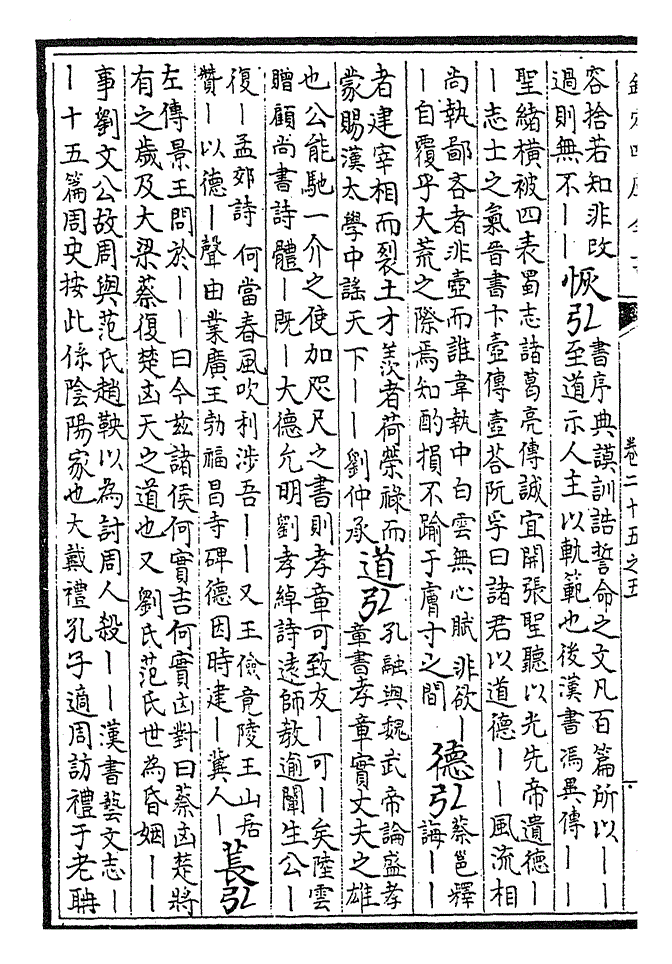 卷二十五之五
容捨若知非改
過則無不丨丨
恢弘
書序典謨訓誥誓命之文凡百篇所以丨丨
至道示人主以軌範也後漢書馮異傳丨丨
聖緒橫被四表蜀志諸葛亮傳誠宜開張聖聽以光先帝遺德丨
丨志士之氣晉書卞壺傳壺荅阮孚曰諸君以道德丨丨風流相
尚執鄙吝者非壺而誰韋執中白雲無心賦非欲丨
丨自覆乎大荒之際焉知酌損不踰于膚寸之間
德弘
蔡邕釋
誨丨丨
者建宰相而裂土才羡者荷榮祿而
蒙賜漢太學中謡天下丨丨劉仲承
道弘
孔融與魏武帝論盛孝
章書孝章實丈夫之雄
也公能馳一介之使加咫尺之書則孝章可致友丨可丨矣陸雲
贈顧尚書詩體丨既丨大德允明劉孝綽詩遠師教逾闡生公丨
復丨孟郊詩何當春風吹利涉吾丨丨又王儉竟陵王山居
贊丨以德丨聲由業廣王勃福昌寺碑德因時建丨冀人丨
萇弘
左傳景王問於丨丨曰今兹諸侯何實吉何實凶對曰蔡凶楚將
有之歲及大梁蔡復楚凶天之道也又劉氏范氏世為昏姻丨丨
事劉文公故周與范氏趙鞅以為討周人殺丨丨漢書藝文志丨
丨十五篇周史按此係陰陽家也大戴禮孔子適周訪禮于老聃